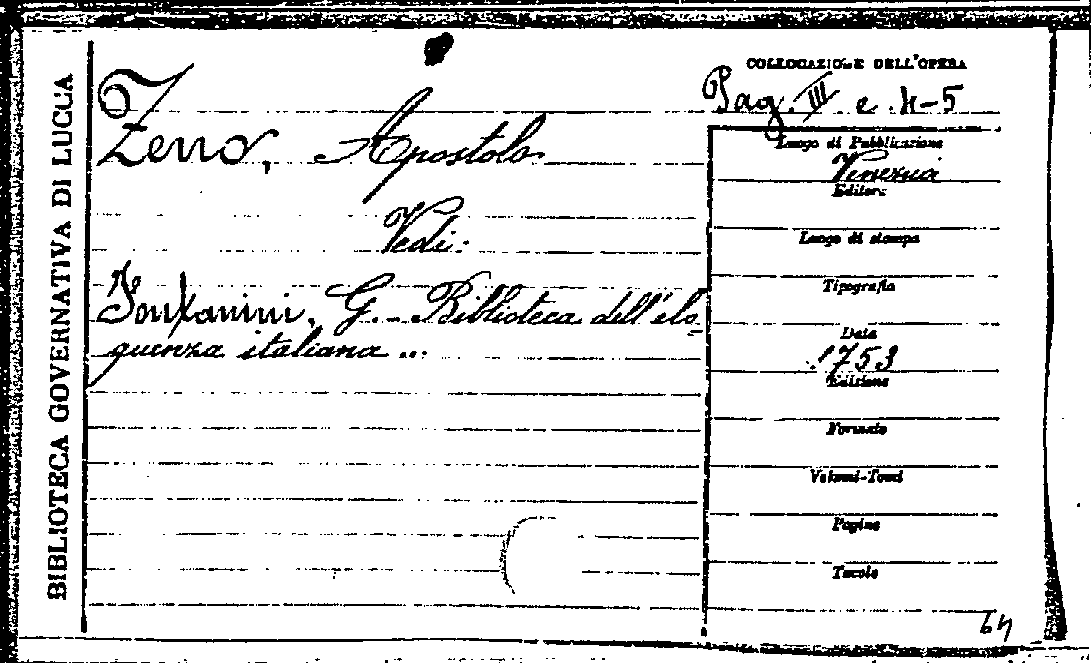 BIBLIOTECA GOVERNATIVA DI LUCCA
Zeno, Apostolo
Vedi:
Fontanini, G. - Biblioteca dell'elo=
quenza italiana ...
COLLOCAZIONE DELL'OPERA
Pag. III. c. 4-5
Luogo di Pubblicazione
Venezia
Editore
Luogo di stampa
Tipografia
Data
1753
Edizione
Formato
Volumi-Tomi
Pagine
Tavole
64